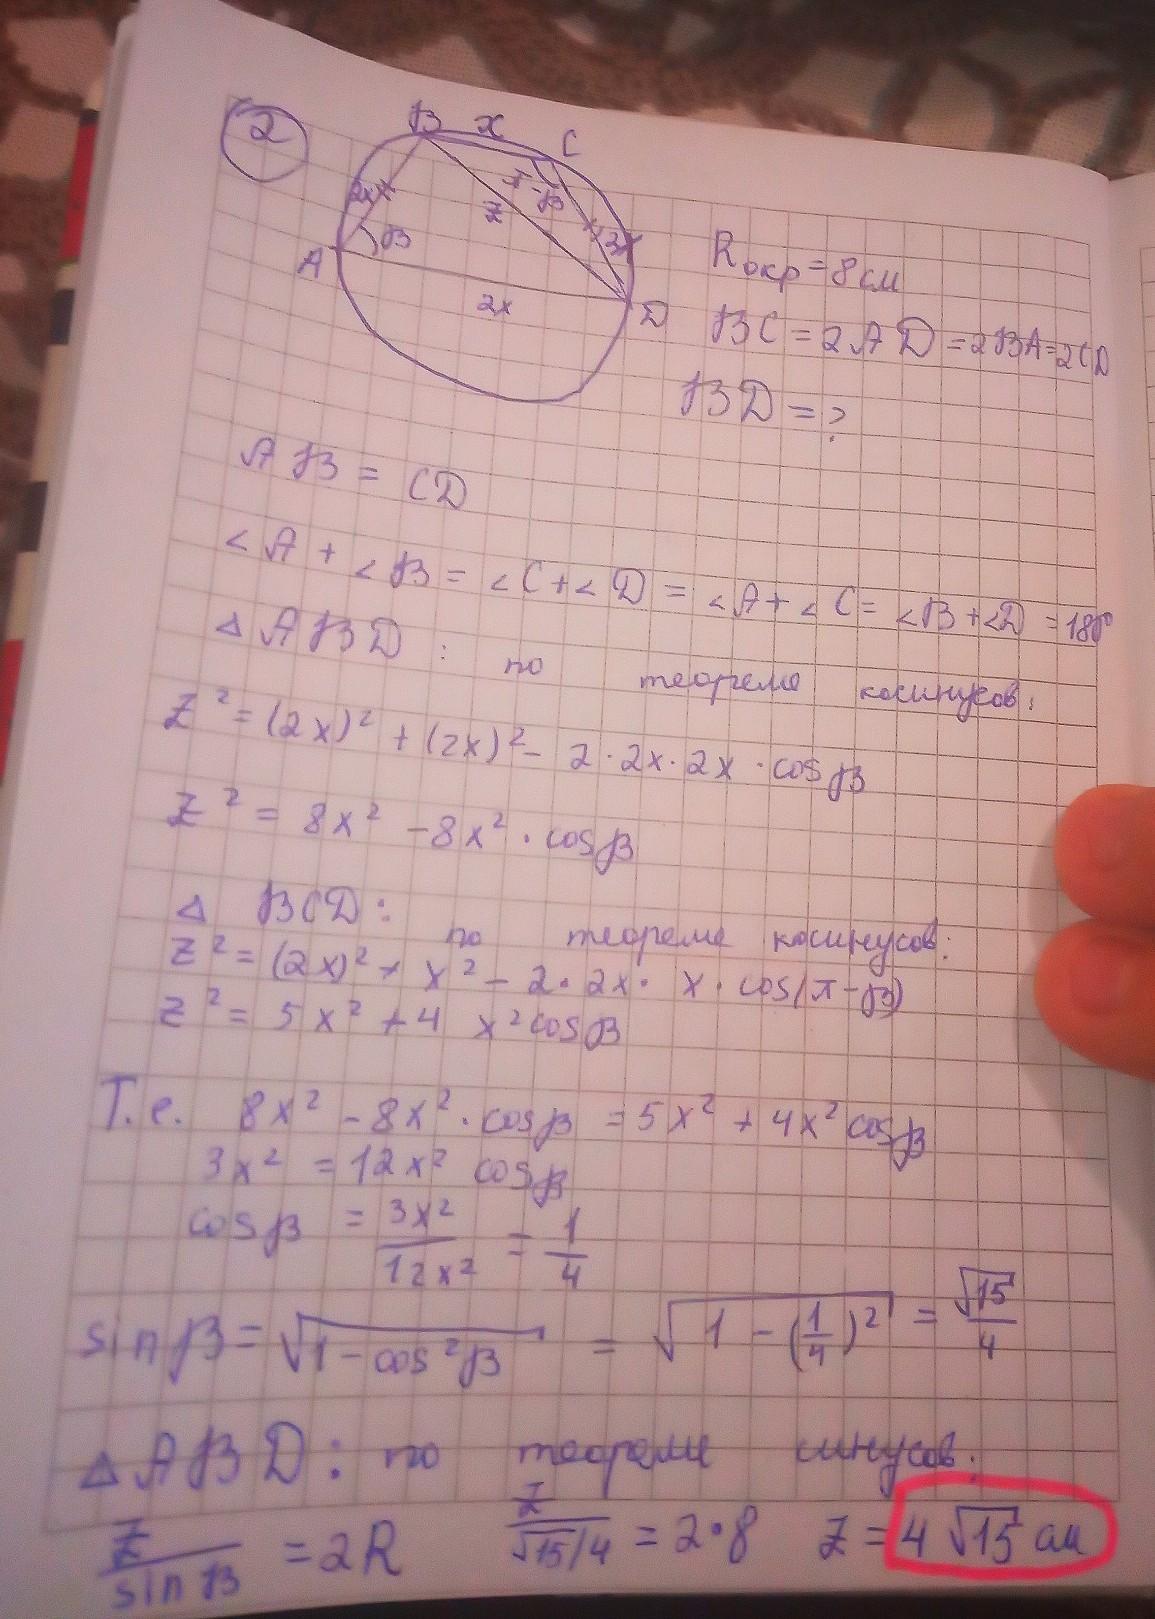 2
B x C
2x π-β
z 2x
A β
2x D
Rокр = 8 см
BC = 2AD = 2BA = 2CD
BD = ?
AB = CD
∠A + ∠B = ∠C + ∠D = ∠A + ∠C = ∠B + ∠D = 180°
△ABD: по теореме косинусов:
z² = (2x)² + (2x)² - 2·2x·2x·cosβ
z² = 8x² - 8x²·cosβ
△ BCD: по теореме косинусов:
z² = (2x)² + x² - 2·2x·x·cos(π-β)
z² = 5x² + 4x²cosβ
Т.е. 8x² - 8x²·cosβ = 5x² + 4x²cosβ
3x² = 12x² cosβ
cosβ = 3x²/12x² = 1/4
sinβ = √(1-cos²β) = √(1-(1/4)²) = √15/4
△ABD: по теореме синусов:
z/sinβ = 2R z/(√15/4) = 2·8 z = 4√15 см